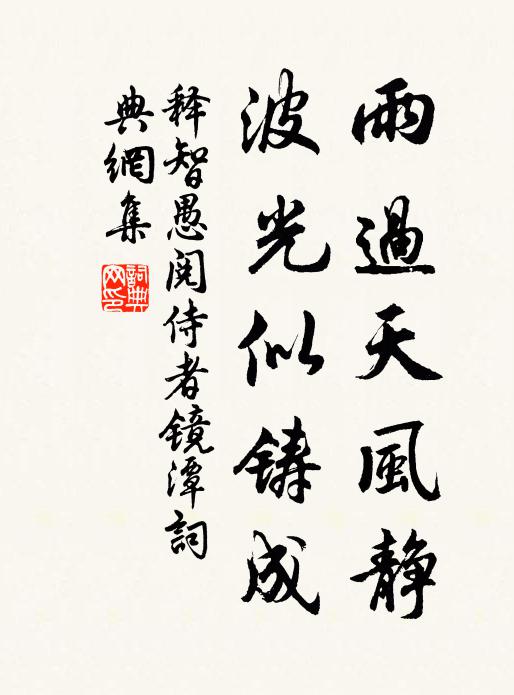 雨過天風静
波光似鑄成
释智愚阅侍者镜潭詞
典網集
詞典网印